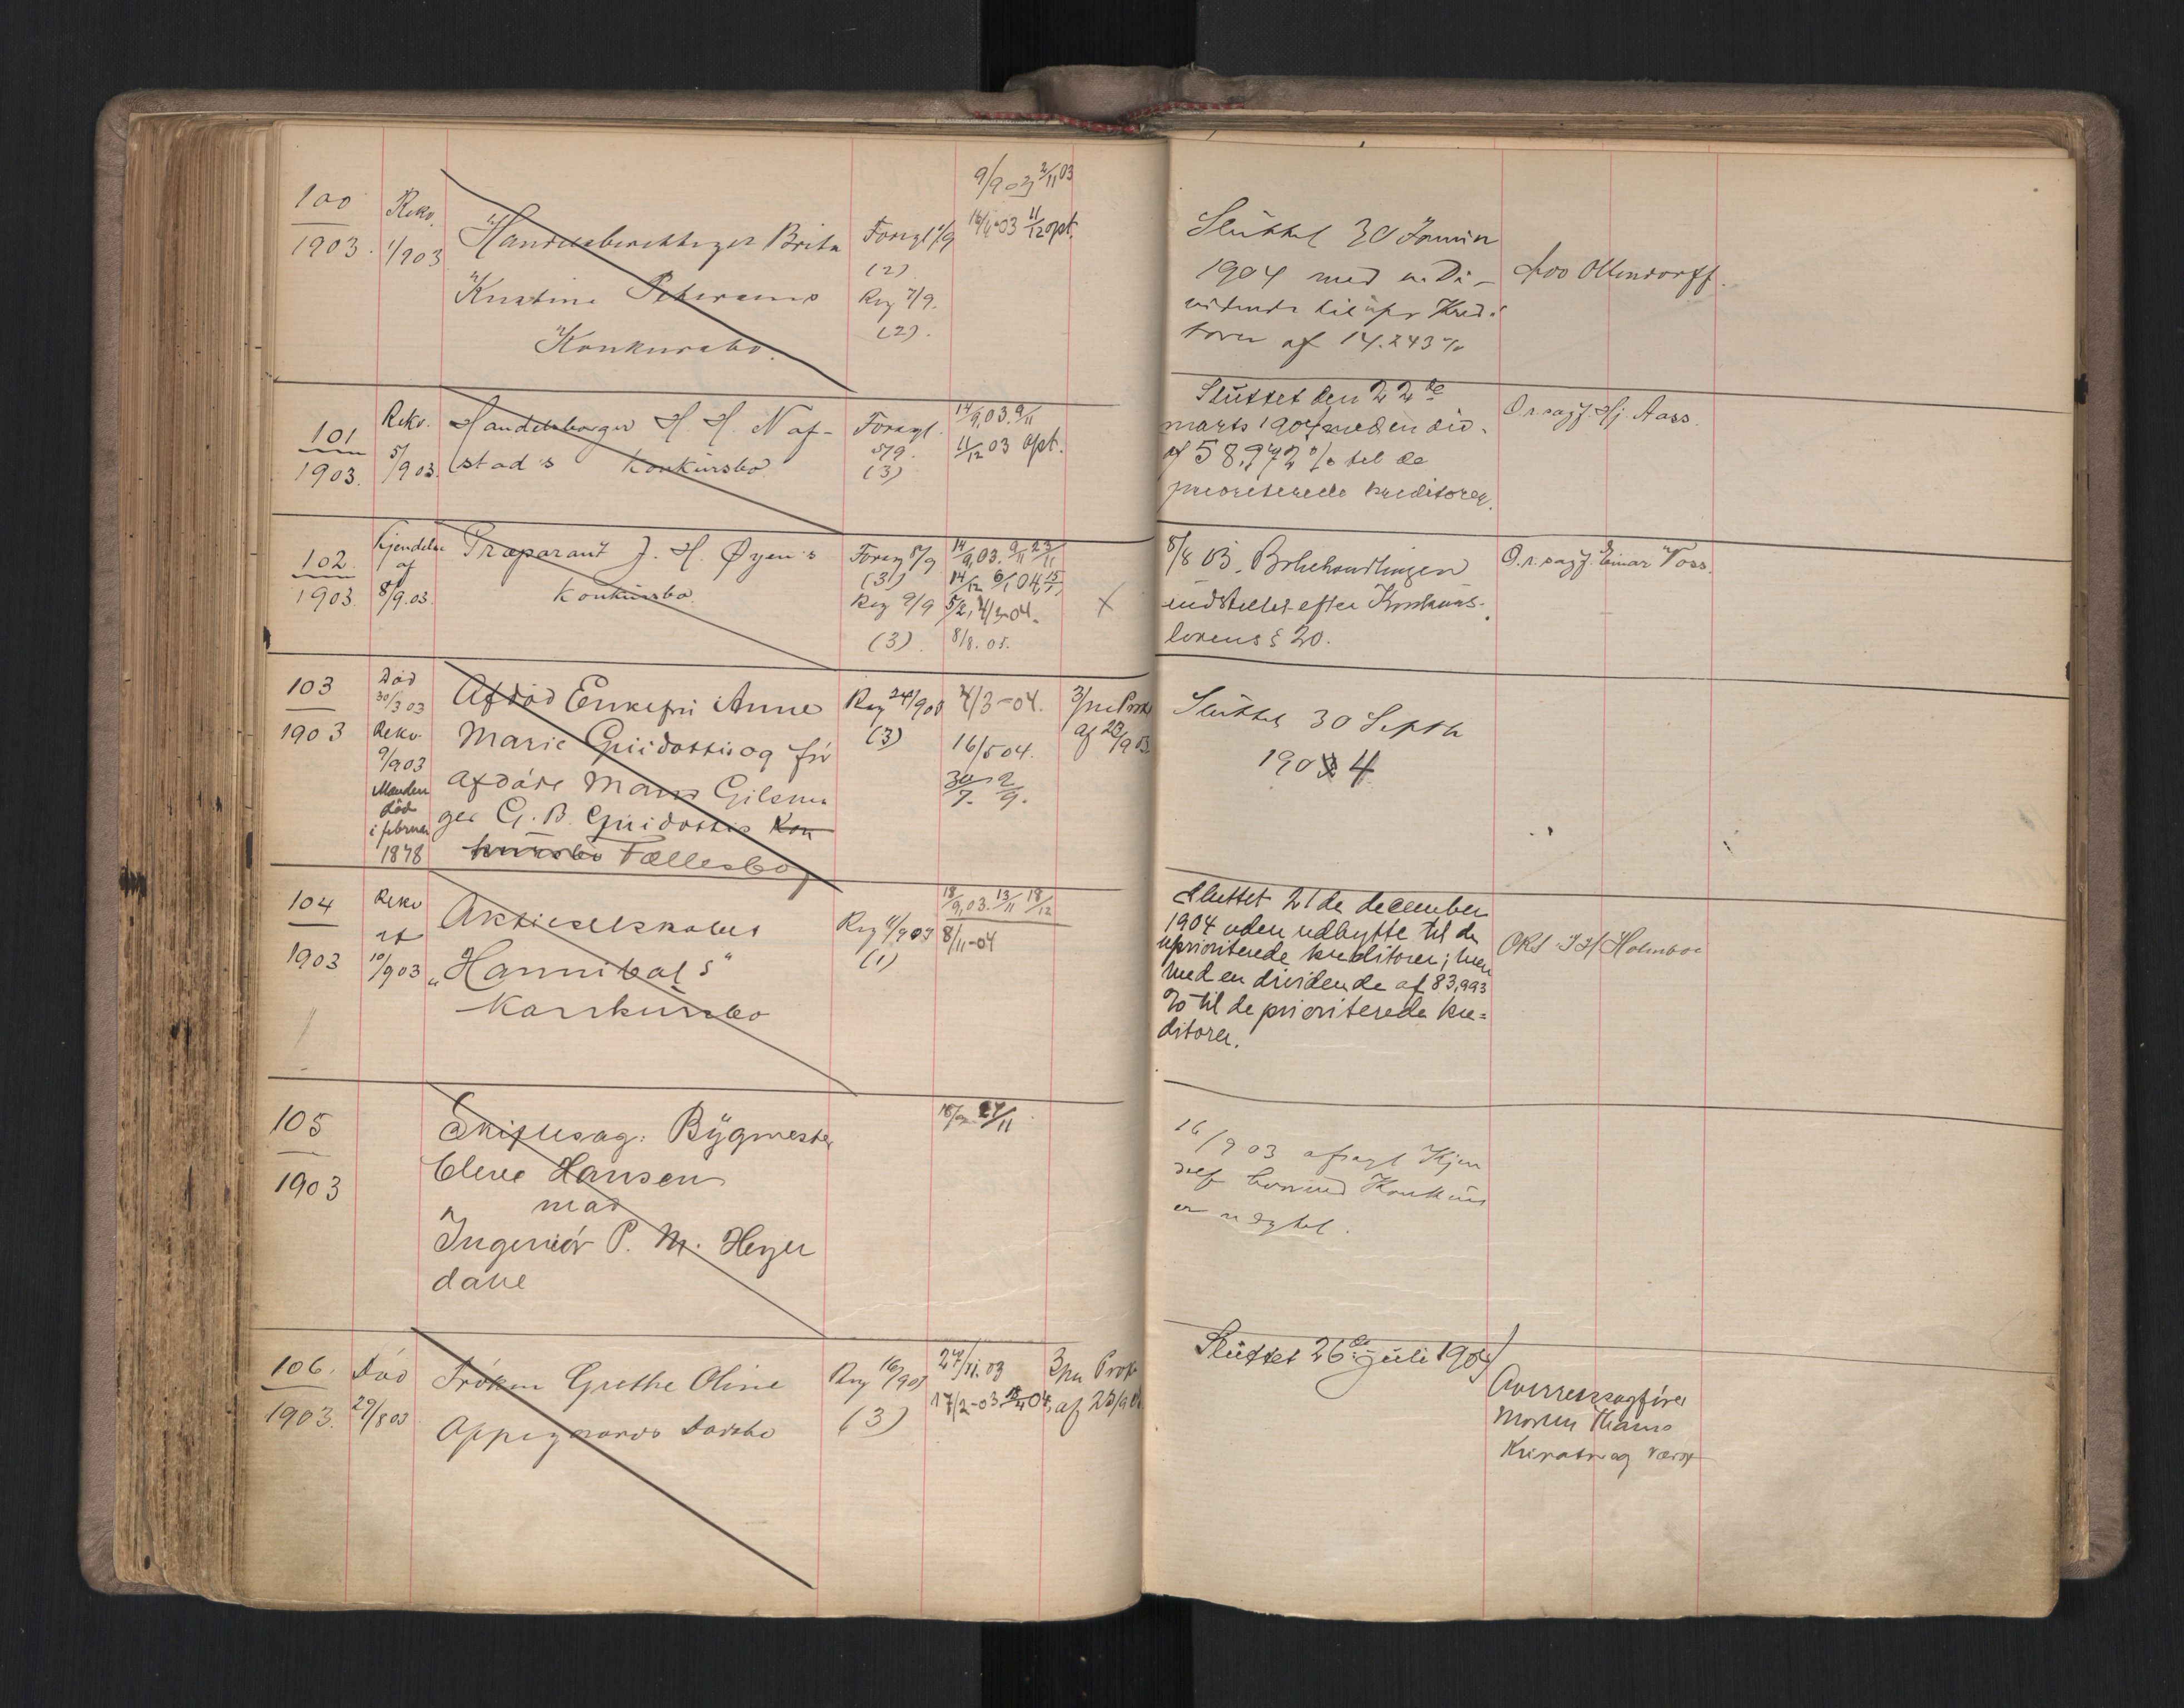 100
1903.
Rekv.
1/9 03
Handelsberettiget Brita
Kristine Petersens
Konkursbo.
Forsgl 1/9
(2)
Reg 7/9.
(2).
9/9 03 2/11 03
11/12 opt.
Sluttet 30 Januar
1904 med en Di-
vidende til upr Kredi
torer af 14.243 %
Ovo Ottendorff.
101
1903.
Rekv.
5/9 03.
Handelsborger H. H. Naf-
stad's Konkursbo
Forsgl.
5/9.
(3)
14/9.03. 9/11
11/12 03 opt.
Sluttet den 22de
marts 1904 med en div.
af 58,972 % til de
prioriterede kreditorer.
O.r.sagf. Hj. Aass.
102.
1903.
Kjendelse
af
8/9.03.
Præparant J. H. Øyen's
Konkursbo.
Forsg 8/9
(3)
Reg 9/9
(3).
14/9.03. 9/11 23/11
14/12 6/1 04, 15/1
5/2, 4/3-04.
8/8. 05.
X
8/8 05. Bobehandlingen
indstillet efter Konkurs-
lovens § 20.
O.r.sagf. Einar Voss.
103
1903
Død
30/3 03
Rekv.
9/9 03
Manden
død
i februar
1878
Afdød Enkefru Anne
Marie Guidottis og før
afdøde Mand Gibsma
ger G. B. Guidottis Kon
kursbo Fællesbo
Reg 24/9 03
(3)
4/3-04.
16/5 04.
30/7. 2/9.
3/m Prok
af 23/9 03
Sluttet 30 Septbr
1903 4
104
1903
Rekv
af
10/9 03
Aktieselskabet
"Hannibal's"
Konkursbo
Reg 11/9 03
(1)
18/9,03. 13/11 18/12
8/11-04
Sluttet 21de december
1904 uden udbytte til de
uprioriterede kreditorer; men
med en dividende af 83,993
% til de prioriterede kre=
ditorer.
ORS J H Holmboe
105
1903
Skiftesag: Bygmester
Hansen
mod
Ingeniør P. M. Heyer
dahl
27/11
16/9 03 afsagt Kjen
delse hvorved Konkurs
er nægtet.
106.
1903.
Død
29/8 03
Frøken Grethe Oline
Appegaards Dødsbo
Reg 16/9 03
(3)
27/11.03
17/2-03. 04,
3/m Prok
af 23/9 03.
Sluttet 26de juli 1904
Overretssagfører
Morten Thams
Kurator og værge